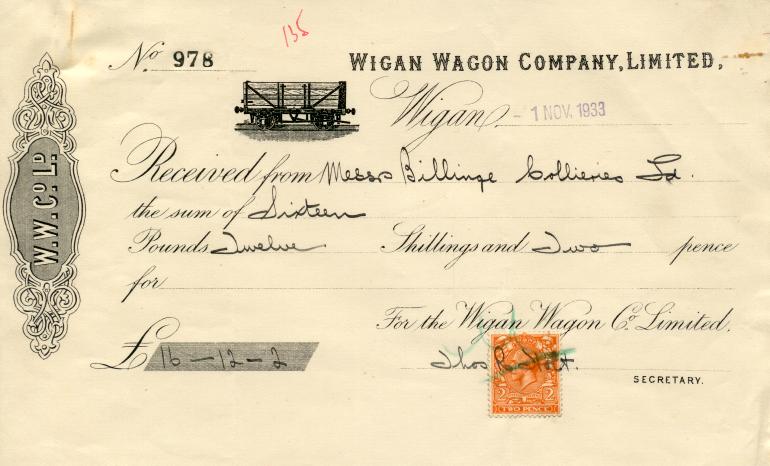 135
No 978
WIGAN WAGON COMPANY, LIMITED,
Wigan - 1 NOV. 1933
W.W. Co. Ld.
Received from Messrs Billinge Collieries Ld.
the sum of Sixteen
Pounds Twelve Shillings and Two pence
for
For the Wigan Wagon Co. Limited.
£ 16 - 12 - 2
Thos R
SECRETARY.
2 2
TWO PENCE